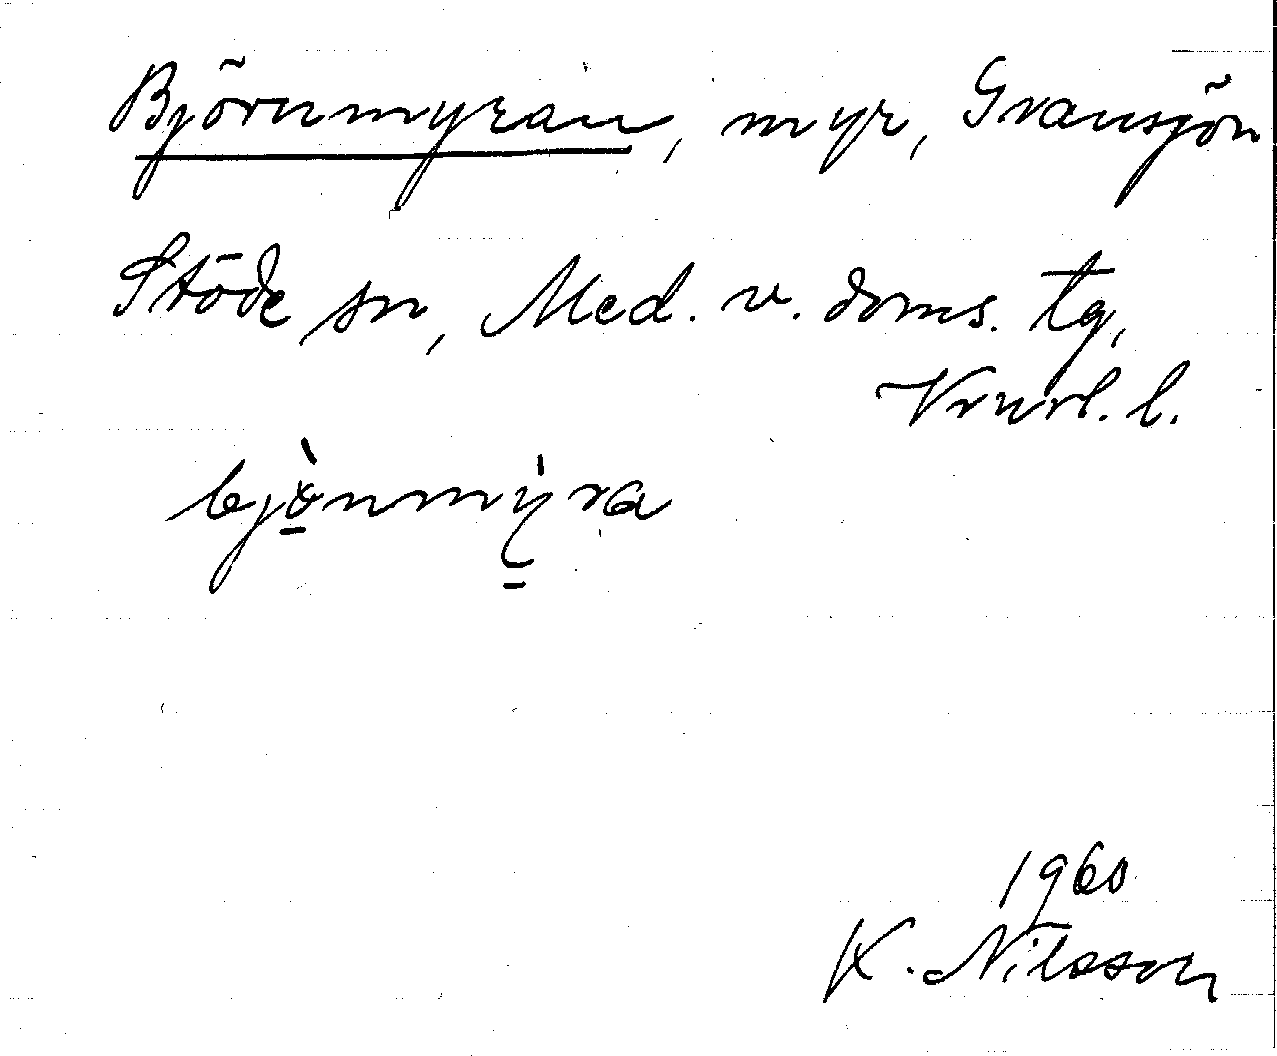 Björnmyran, myr, Gransjön
Stöde sn, Med. v. doms. tg,
Vnrl. l.
bjò̠nmỳ̠ra
1960
K. Nilsson